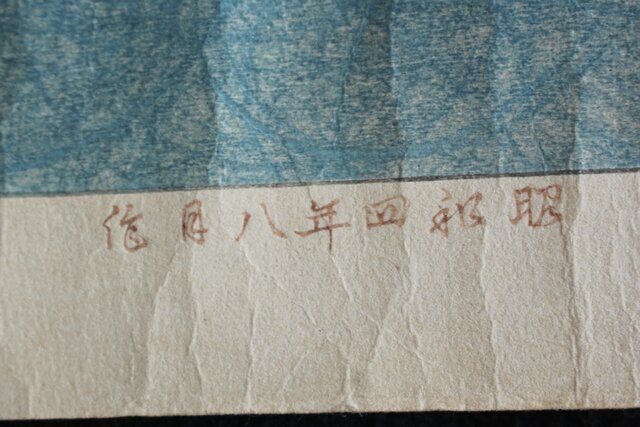 昭和四年八月作